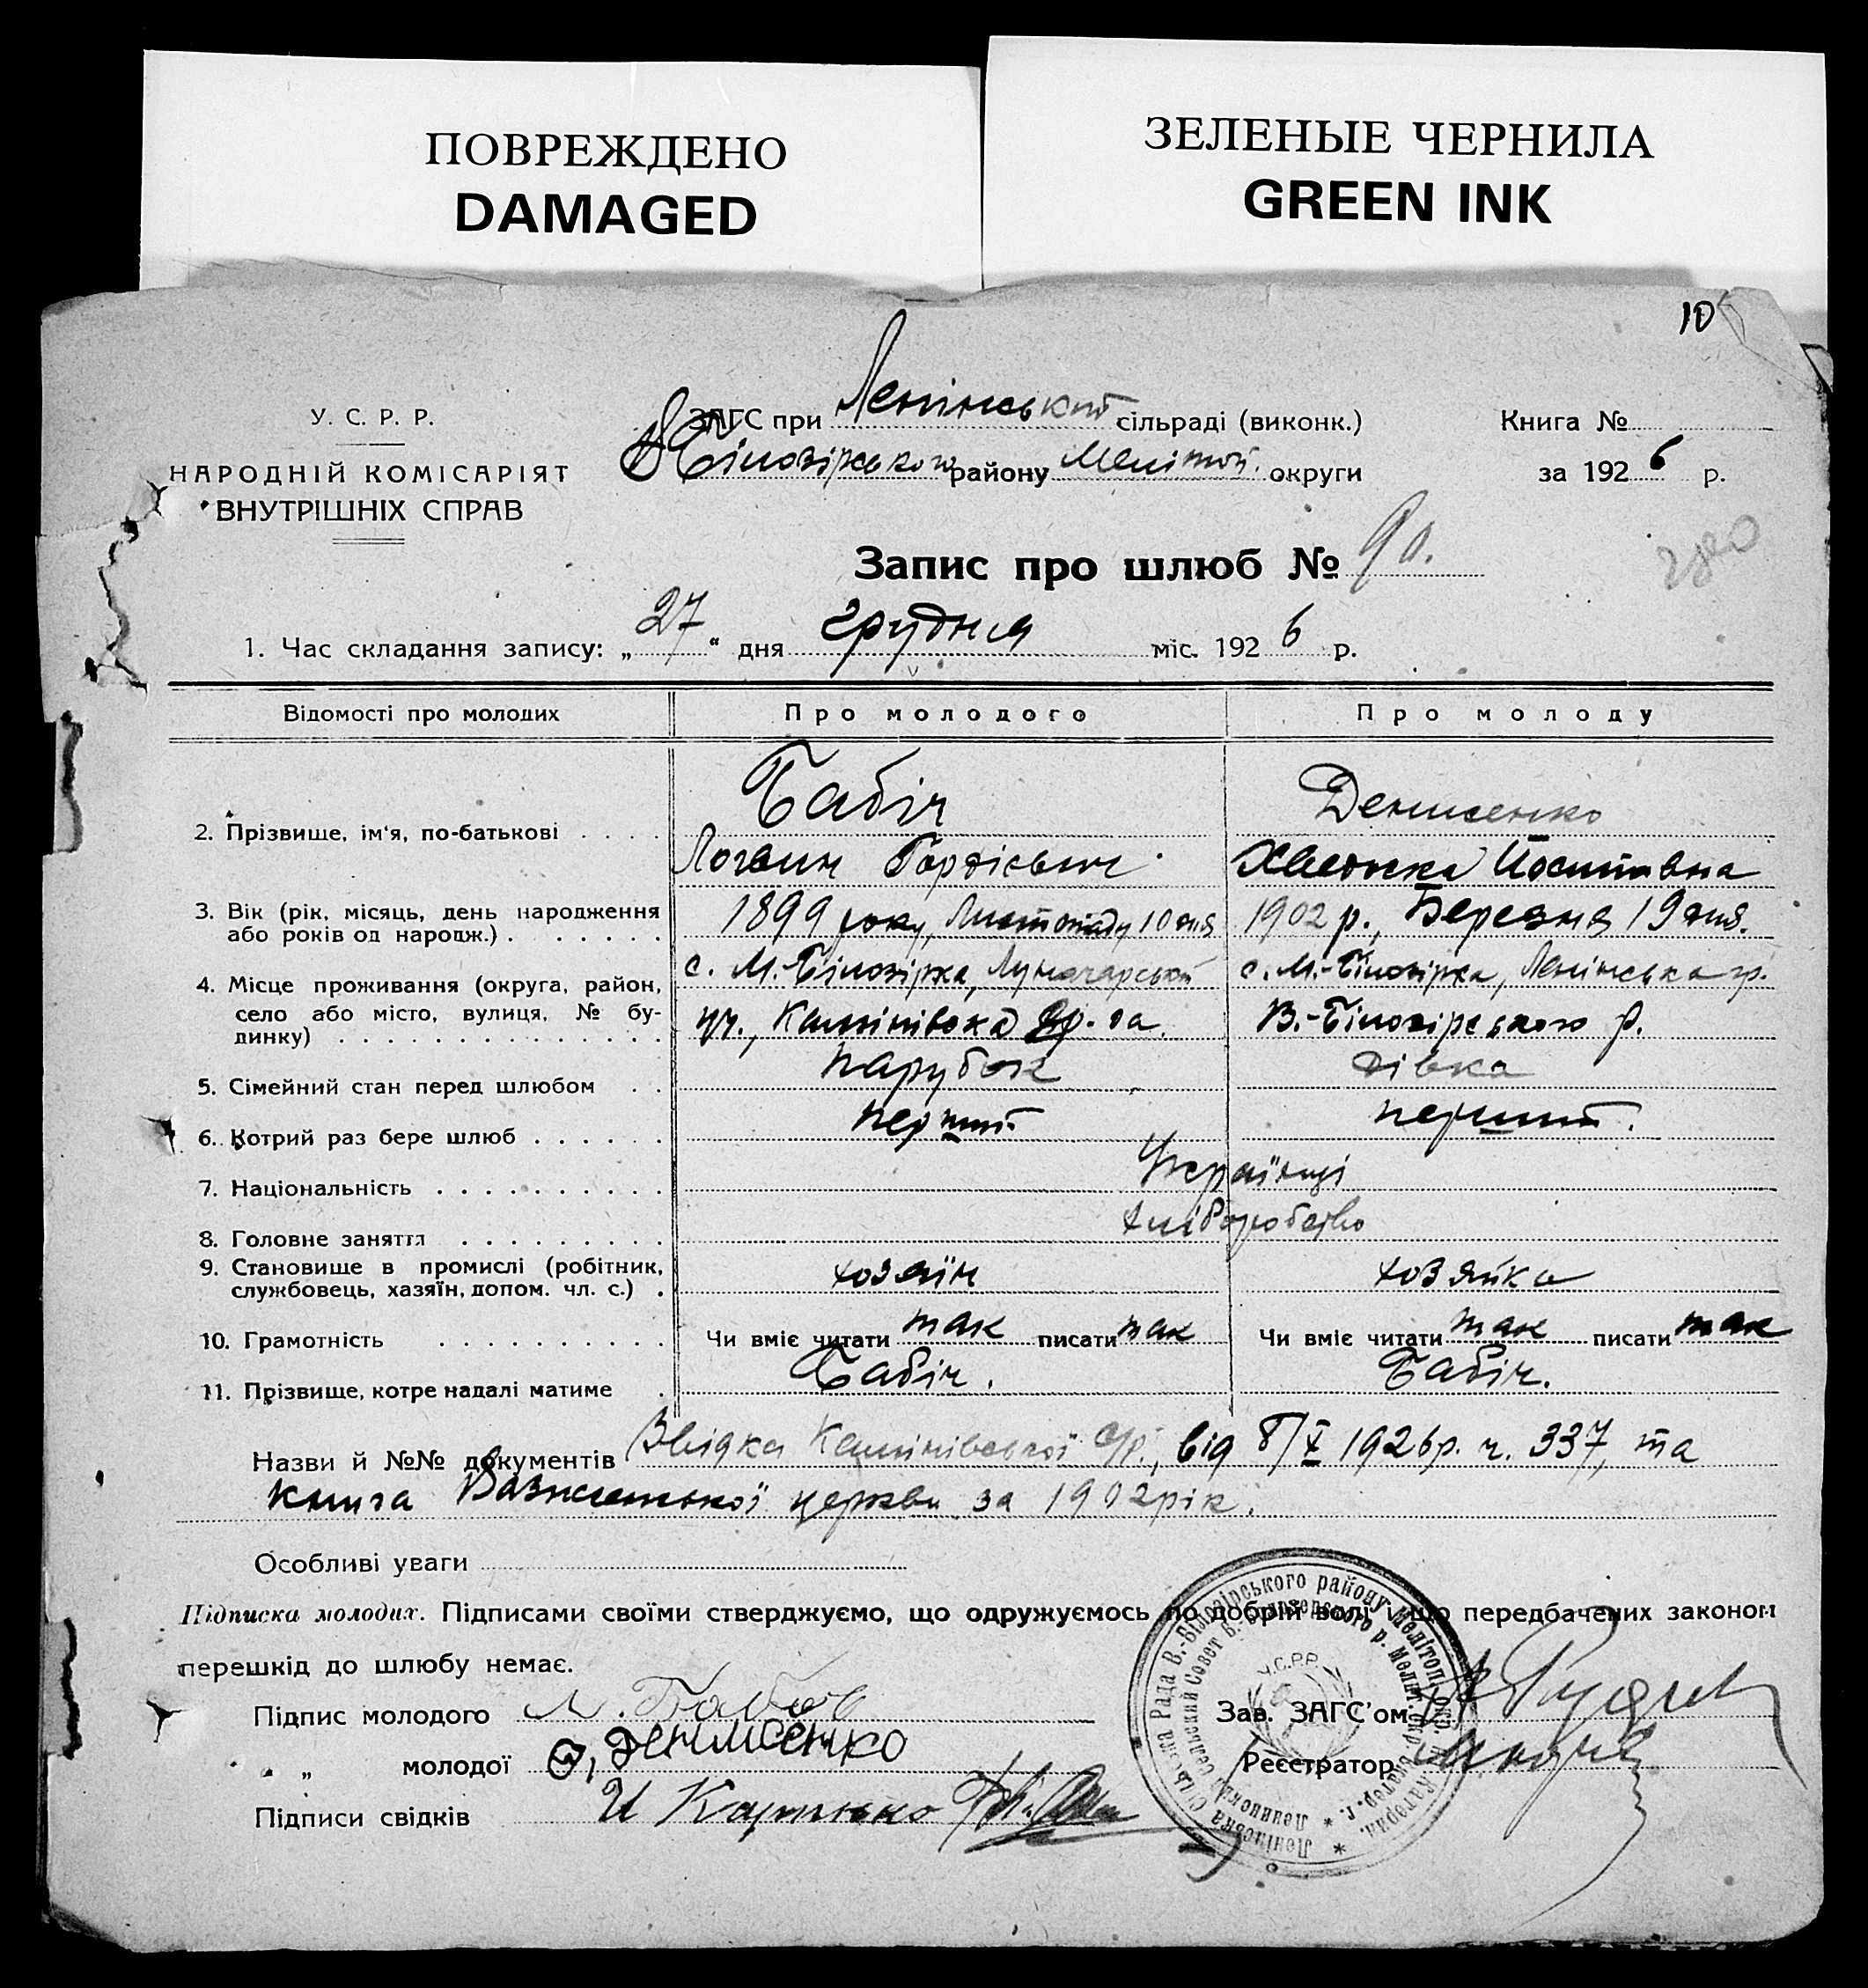 ПОВРЕЖДЕНО
DAMAGED
ЗЕЛЕНЫЕ ЧЕРНИЛА
GREEN INK
10
У. С. Р. Р.
НАРОДНІЙ КОМІСАРІЯТ
ВНУТРІШНІХ СПРАВ
ЗАГС при Ленінський сільраді (виконк.)
В Білозірського району Меліт. округи
Книга №
за 1926 р.
Запис про шлюб № 90.
1. Час складання запису: „27“ дня грудня міс. 1926 р.
Відомості про молодих
Про молодого
Про молоду
2. Прізвище, ім'я, по-батькові
Бабіч
Логвин Гордієвич
Денисенко
Хведоска Йосипівна
3. Вік (рік, місяць, день народження
або років од народж.)
1899 року, Листопаду 10 дня
1902 р., Березня 19 дня.
4. Місце проживання (округа, район,
село або місто, вулиця, № бу-
динку)
с. М.-Білозірка, Луначарськ
Калінівска
с. М.-Білозірка, Ленінська гр.
В.-Білозірського р.
5. Сімейний стан перед шлюбом
парубок
дівка
6. Котрий раз бере шлюб
перший
перший.
7. Національність
Українці
8. Головне заняття
хліборобство
9. Становище в промислі (робітник,
службовець, хазяїн, допом. чл. с.)
хозяїн
хозяйка
10. Грамотність
Чи вміє читати так писати так
Чи вміє читати так писати так
11. Прізвище, котре надалі матиме
Бабіч.
Бабіч.
Назви й №№ документів Звідка Калінівської с/р., від 8/X 1926 р. ч. 337, та
книга церкви за 1902 рік.
Особливі уваги
Підписка молодих. Підписами своїми стверджуємо, що одружуємось по добрій волі і що передбачених законом
перешкід до шлюбу немає.
Підпис молодого Л. Бабіч
„ молодої Ф, Денисенко
Підписи свідків И
Зав. ЗАГС'ом
Реєстратор
Ленінська Сільска Рада В.-Білозірського району Мелітоп. окр. на Катерин.
Ленинский сельский Совет В.-Белозерского р. Мелит. окр. Екатер. г.
У.С.Р.Р.